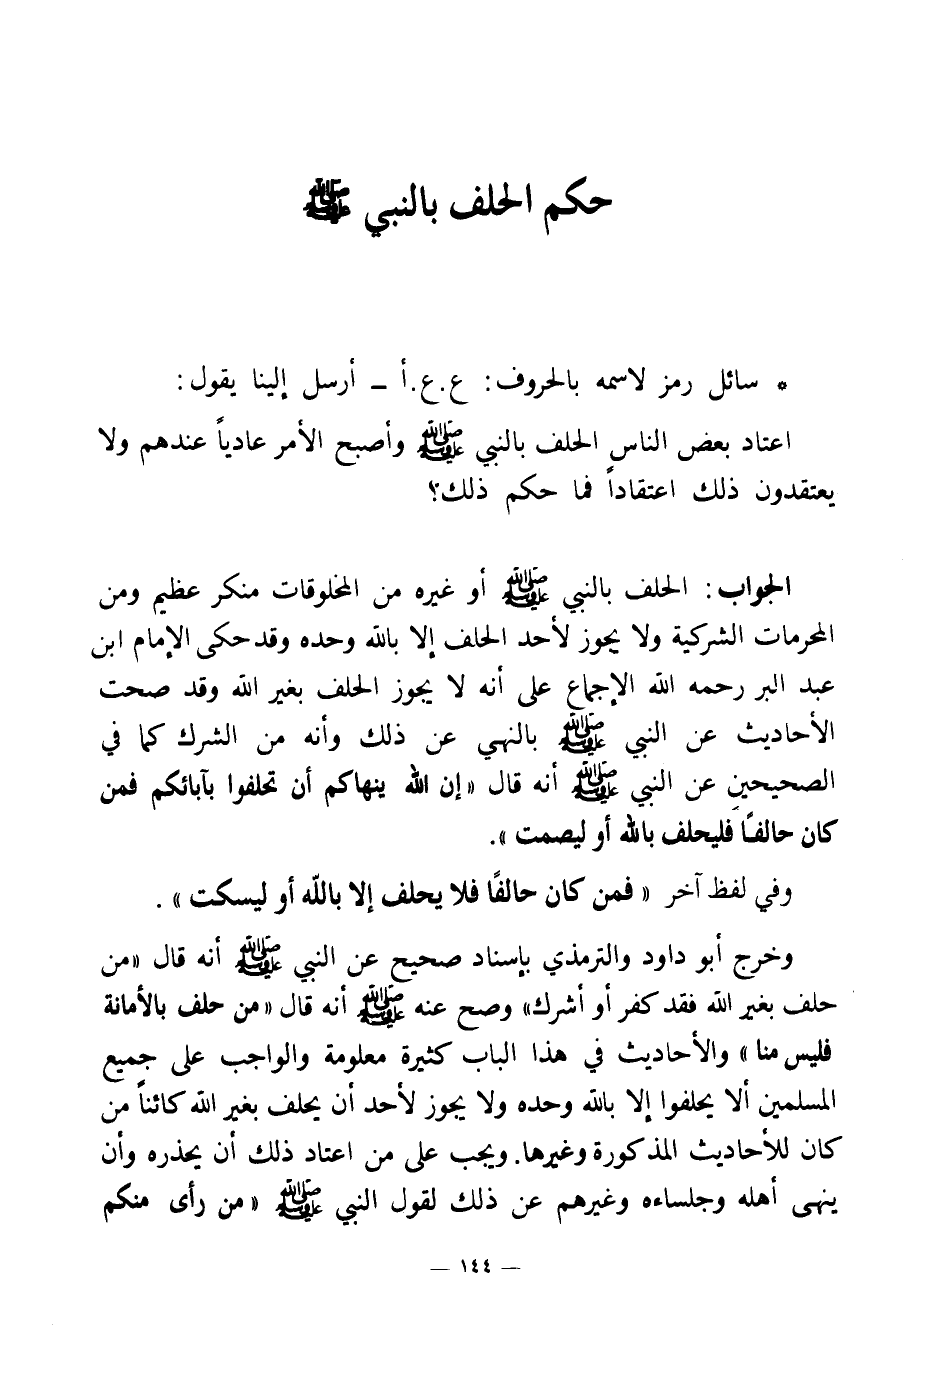 حكم الحلف بالنبي ﷺ
* سائل رمز لاسمه بالحروف: ع.ع.أ – أرسل إلينا يقول:
اعتاد بعض الناس الحلف بالنبي ﷺ وأصبح الأمر عادياً عندهم ولا
يعتقدون ذلك اعتقاداً فما حكم ذلك؟
الجواب: الحلف بالنبي ﷺ أو غيره من المخلوقات منكر عظيم ومن
المحرمات الشركية ولا يجوز لأحد الحلف إلا بالله وحده وقد حكى الإمام ابن
عبد البر رحمه الله الإجماع على أنه لا يجوز الحلف بغير الله وقد صحت
الأحاديث عن النبي ﷺ بالنهي عن ذلك وأنه من الشرك كما في
الصحيحين عن النبي ﷺ أنه قال «إن الله ينهاكم أن تحلفوا بآبائكم فمن
كان حالفًا فليحلف بالله أو ليصمت».
وفي لفظ آخر «فمن كان حالفًا فلا يحلف إلا باللّه أو ليسكت».
وخرج أبو داود والترمذي بإسناد صحيح عن النبي ﷺ أنه قال «من
حلف بغير الله فقد كفر أو أشرك» وصح عنه ﷺ أنه قال «من حلف بالأمانة
فليس منا» والأحاديث في هذا الباب كثيرة معلومة والواجب على جميع
المسلمين ألا يحلفوا إلا بالله وحده ولا يجوز لأحد أن يحلف بغير الله كائناً من
كان للأحاديث المذكورة وغيرها. ويجب على من اعتاد ذلك أن يحذره وأن
ينهى أهله وجلساءه وغيرهم عن ذلك لقول النبي ﷺ «من رأى منكم
— ١٤٤ —